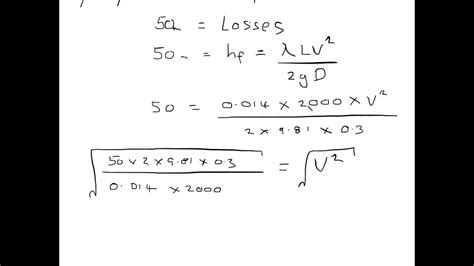 50m = Losses
50m = hf = λLV²/2gD
50 = 0.014 × 2000 × V²/2 × 9.81 × 0.3
√(50 × 2 × 9.81 × 0.3/0.014 × 2000) = √V²